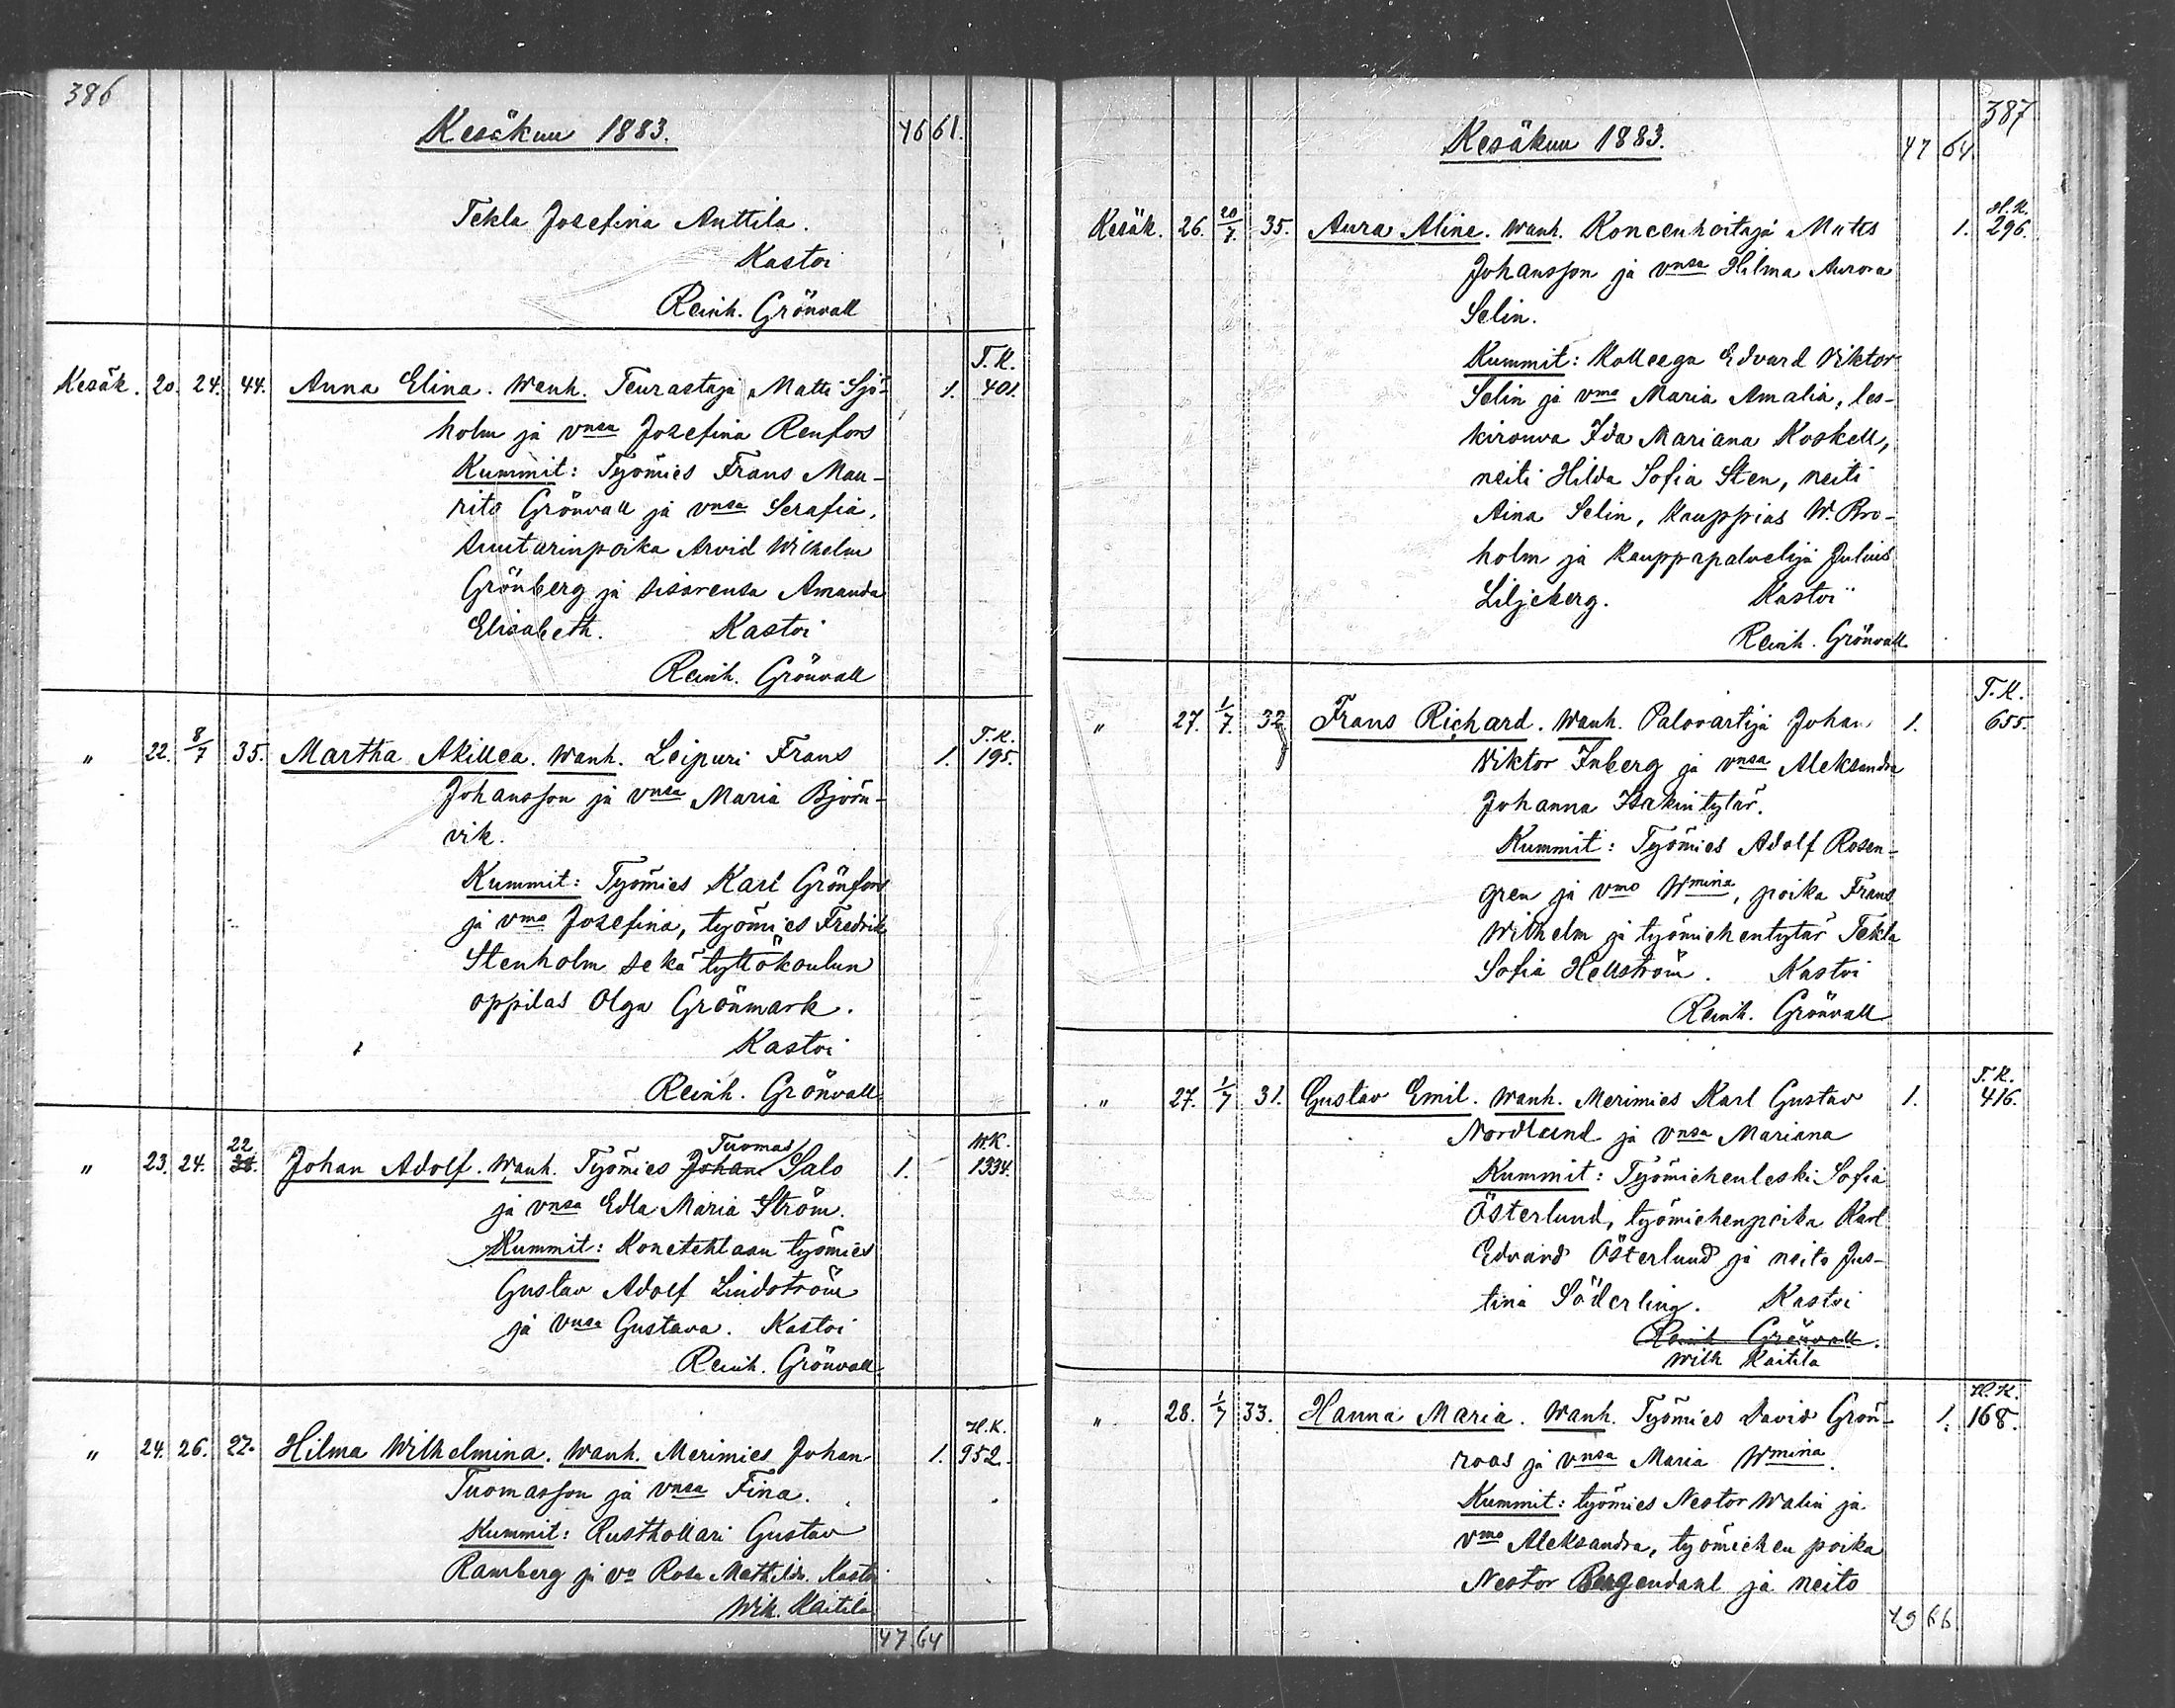 386
Kesäkuu 1883. 46 61.
Tekla Josefina Anttila.
Kastoi
Reinh. Grönvall
T. K.
Kesäk. 20. 24. 44. Anna Elina. Wanh. Teurastaja Matti Sjö- 1. 401.
holm ja vnsa Josefina Renfors
Kummit: Työmies Frans Mau-
rits Grönvall ja vnsa Serafia,
suutarinpoika Arvid Wilhelm
Grönberg ja sisarensa Amanda
Elisabeth. Kastoi
Reinh. Grönvall
T. K.
" 22. 8/7 35. Martha Akillea. Wanh. Leipuri Frans 1. 195.
Johansson ja vnsa Maria Björn-
vik.
Kummit: Työmies Karl Grönfors
ja vmo Josefina, työmies Fredrik
Stenholm sekä tyttökoulun
oppilas Olga Grönmark.
Kastoi
Reinh. Grönvall
22 Tuomas W.K.
" 23. 24. Johan Adolf. Wanh. Työmies Johan Salo 1. 1334.
ja vnsa Edla Maria Ström.
Kummit: Konetehtaan työmies
Gustav Adolf Lindström
ja vnsa Gustava. Kastoi
Reinh. Grönvall
H. K.
" 24. 26. 27. Hilma Wilhelmina. Wanh. Merimies Johan 1. 952.
Tuomasson ja vnsa Fina.
Kummit: Rusthollari Gustav
Ramberg ja vo Rosa Mathilda. Kastoi
Wilh. Kaitila
47 64
387
Kesäkuu 1883. 47 64
H. K.
Kesäk. 26. 20/7. 35. Aura Aline. Wanh. Koneenhoitaja Mats 1. 296.
Johansson ja vnsa Hilma Aurora
Selin.
Kummit: Kolleega Edvard Viktor
Selin ja vmo Maria Amalia, les-
kirouva Ida Mariana Koskell,
neiti Hilda Sofia Sten, neiti
Aina Selin, Kauppias W. Bro-
holm ja kauppapalvelija Julius
Liljeberg. Kastoi
Reinh. Grönvall
T. K.
" 27. 1/7. 32 Frans Richard. Wanh. Palovartija Johan 1. 655.
Viktor Inberg ja vnsa Aleksandra
Johanna Isakintytär.
Kummit: Työmies Adolf Rosen-
gren ja vmo Wmina, poika Frans
Wilhelm ja työmiehentytär Tekla
Sofia Hellström. Kastoi
Reinh. Grönvall
T. K.
" 27. 1/7 31. Gustav Emil. Wanh. Merimies Karl Gustav 1. 416.
Nordlund ja vnsa Mariana
Kummit: Työmiehenleski Sofia
Österlund, työmiehenpoika Karl
Edvard Österlund ja neito Jus-
tina Söderling. Kastoi
Reinh Grönvall.
Wilh Kaitila
H. K.
" 28. 1/7 33. Hanna Maria. Wanh. Työmies David Grön- 1. 168.
roos ja vnsa Maria Wmina.
Kummit: työmies Nestor Walin ja
vmo Aleksandra, työmiehen poika
Nestor Bergendahl ja neito
49 66